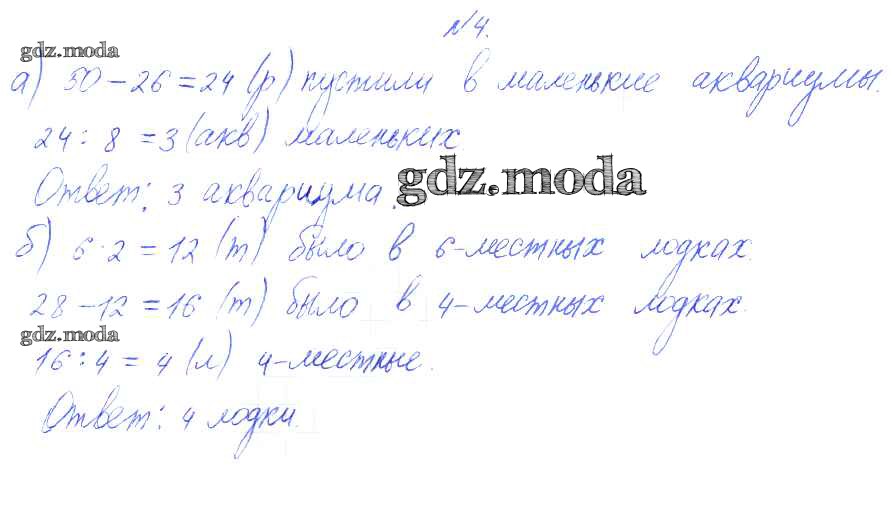 №4.
gdz.moda
а) 50-26=24 (р) пустили в маленькие аквариумы.
24:8=3 (акв) маленьких.
Ответ: 3 аквариума.
gdz.moda
б) 6·2=12 (т) было в 6-местных лодках.
28-12=16 (т) было в 4-местных лодках.
gdz.moda
16:4=4 (л) 4-местные.
Ответ: 4 лодки.